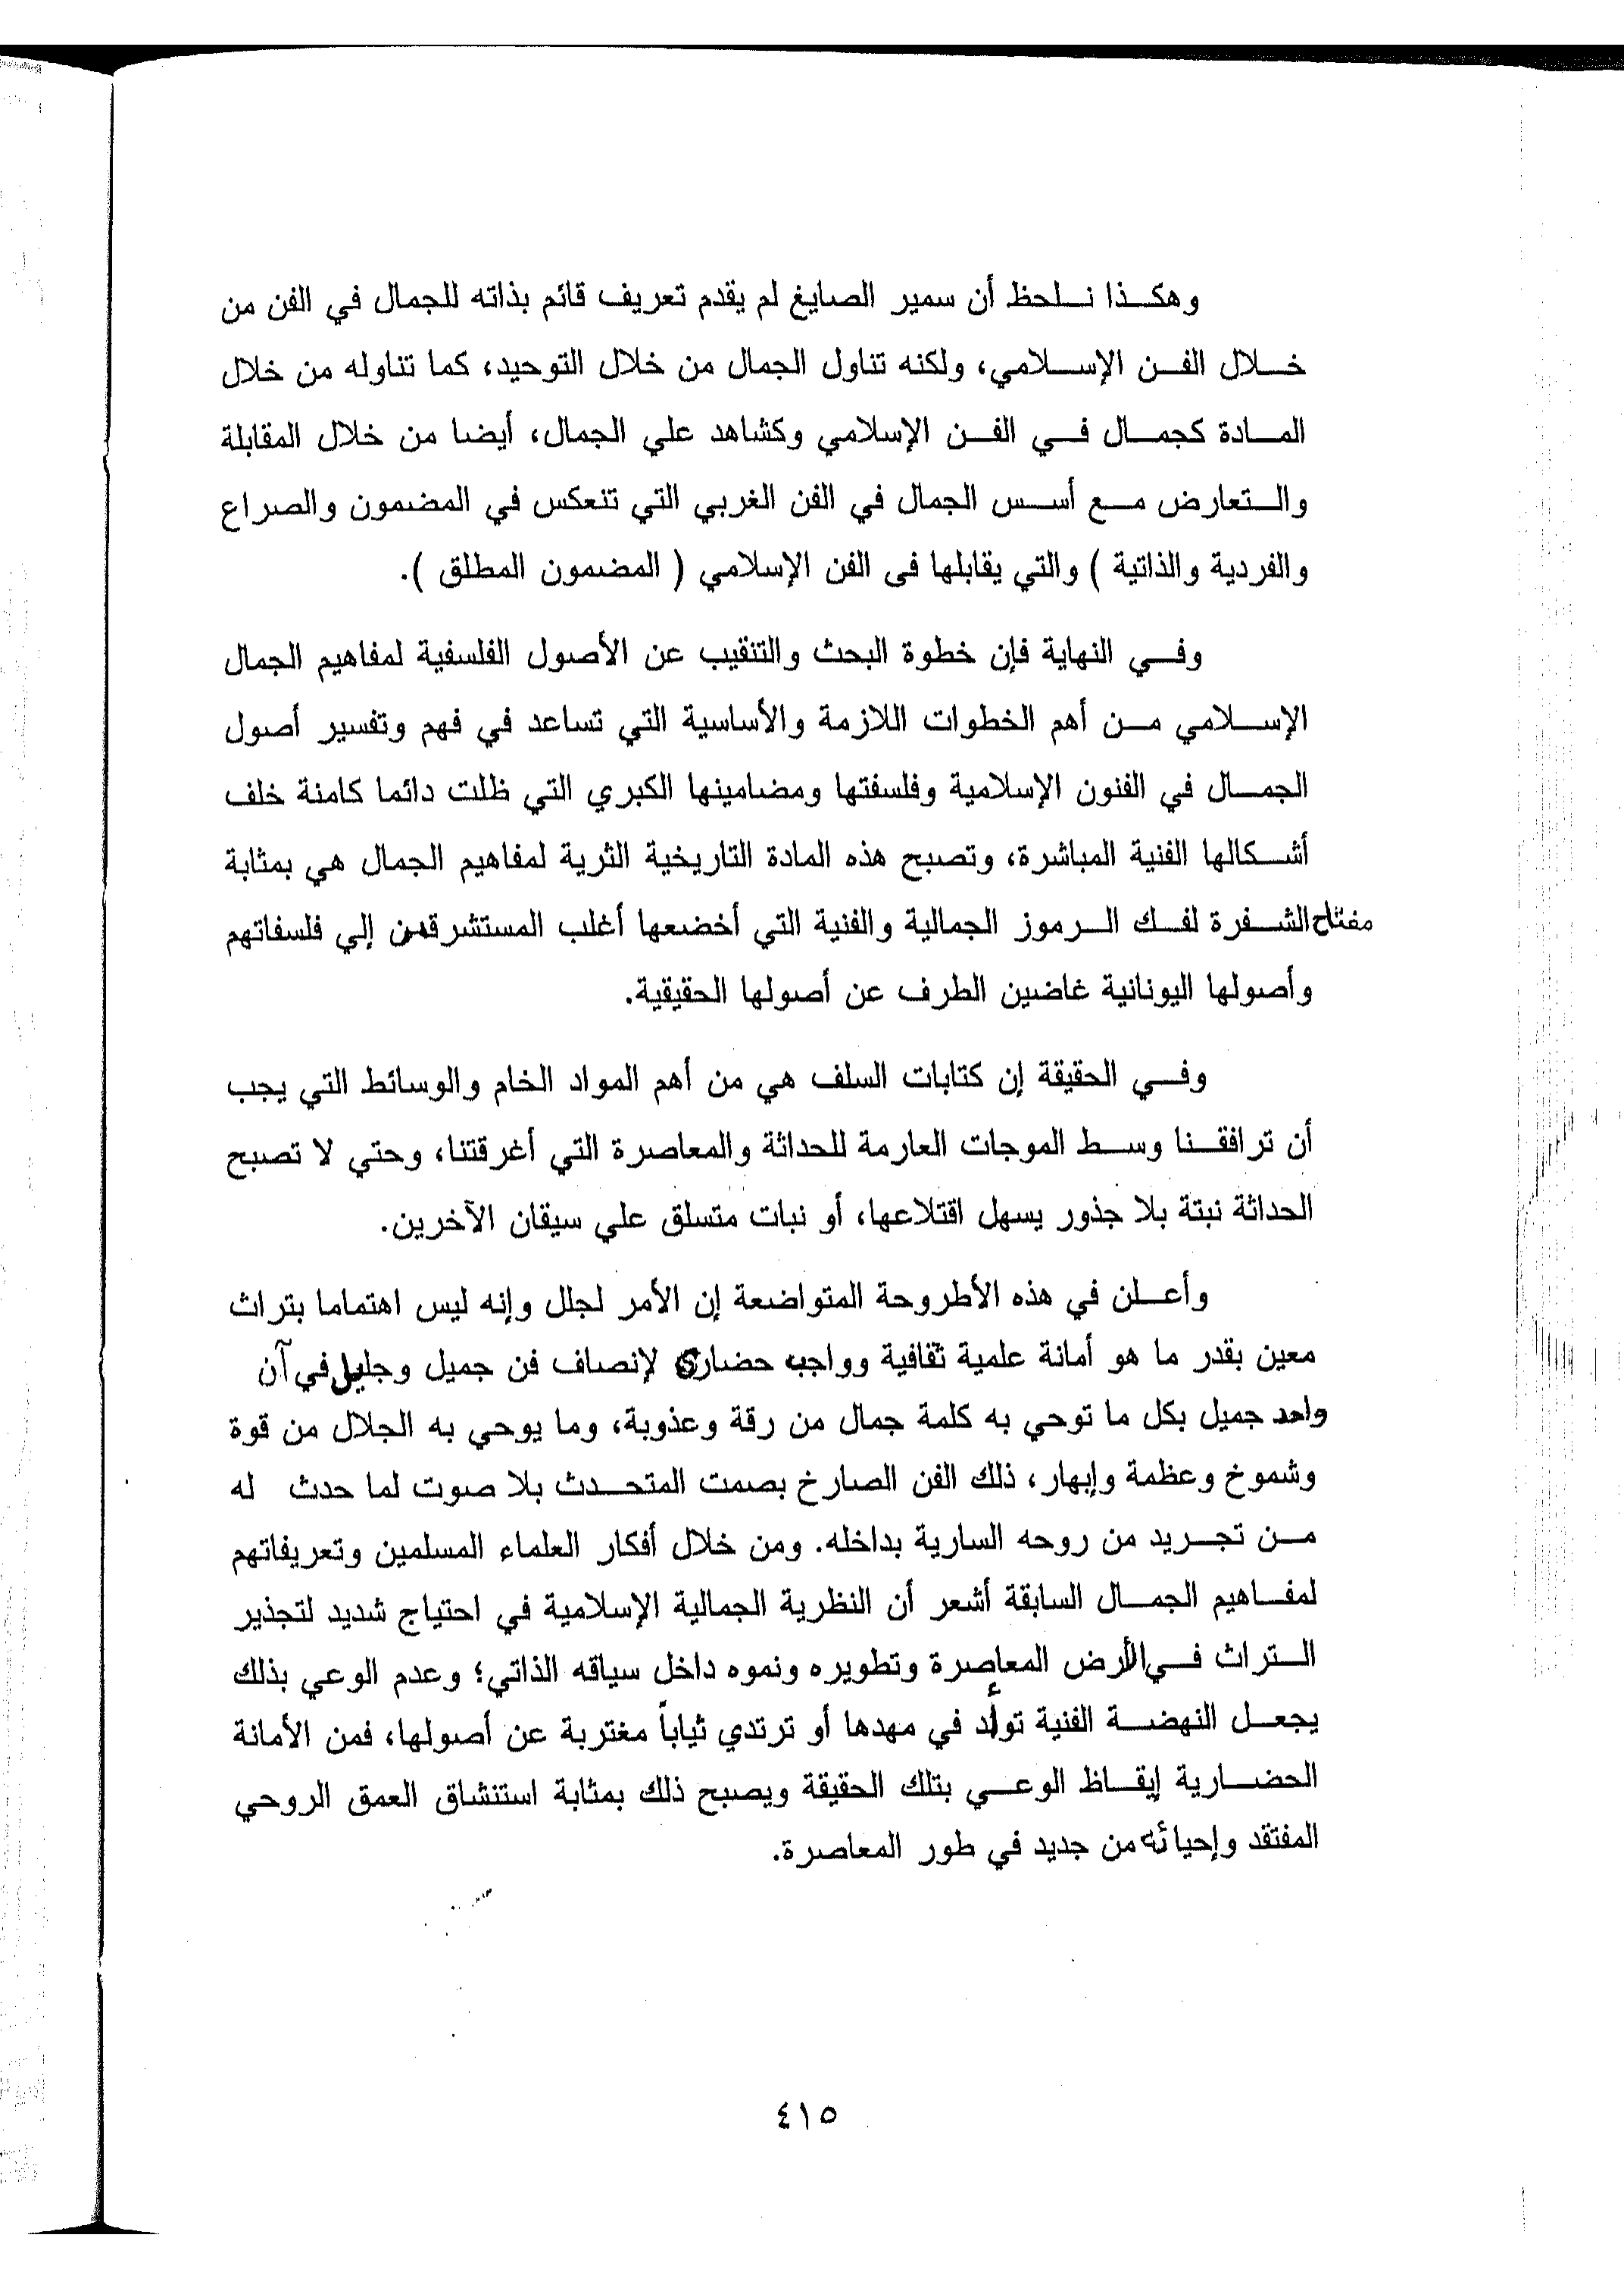 وهكذا نلحظ أن سمير الصايغ لم يقدم تعريف قائم بذاته للجمال في الفن من
خلال الفن الإسلامي، ولكنه تناول الجمال من خلال التوحيد، كما تناوله من خلال
المادة كجمال في الفن الإسلامي وكشاهد علي الجمال، أيضا من خلال المقابلة
والتعارض مع أسس الجمال في الفن الغربي التي تنعكس في المضمون والصراع
والفردية والذاتية ) والتي يقابلها فى الفن الإسلامي ( المضمون المطلق ).
وفي النهاية فإن خطوة البحث والتنقيب عن الأصول الفلسفية لمفاهيم الجمال
الإسلامي من أهم الخطوات اللازمة والأساسية التي تساعد في فهم وتفسير أصول
الجمال في الفنون الإسلامية وفلسفتها ومضامينها الكبري التي ظلت دائما كامنة خلف
أشكالها الفنية المباشرة، وتصبح هذه المادة التاريخية الثرية لمفاهيم الجمال هي بمثابة
مفتاح الشفرة لفك الرموز الجمالية والفنية التي أخضعها أغلب المستشرقين إلي فلسفاتهم
وأصولها اليونانية غاضين الطرف عن أصولها الحقيقية.
وفي الحقيقة إن كتابات السلف هي من أهم المواد الخام والوسائط التي يجب
أن ترافقنا وسط الموجات العارمة للحداثة والمعاصرة التي أغرقتنا، وحتي لا تصبح
الحداثة نبتة بلا جذور يسهل اقتلاعها، أو نبات متسلق علي سيقان الآخرين.
وأعلن في هذه الأطروحة المتواضعة إن الأمر لجلل وإنه ليس اهتماما بتراث
معين بقدر ما هو أمانة علمية ثقافية وواجب حضاري لإنصاف فن جميل وجليل في آن
واحد جميل بكل ما توحي به كلمة جمال من رقة وعذوبة، وما يوحي به الجلال من قوة
وشموخ وعظمة وإبهار، ذلك الفن الصارخ بصمت المتحدث بلا صوت لما حدث له
من تجريد من روحه السارية بداخله. ومن خلال أفكار العلماء المسلمين وتعريفاتهم
لمفاهيم الجمال السابقة أشعر أن النظرية الجمالية الإسلامية في احتياج شديد لتجذير
التراث في الأرض المعاصرة وتطويره ونموه داخل سياقه الذاتي؛ وعدم الوعي بذلك
يجعل النهضة الفنية توأد في مهدها أو ترتدي ثياباً مغتربة عن أصولها، فمن الأمانة
الحضارية إيقاظ الوعي بتلك الحقيقة ويصبح ذلك بمثابة استنشاق العمق الروحي
المفتقد وإحيائه من جديد في طور المعاصرة.
٤١٥